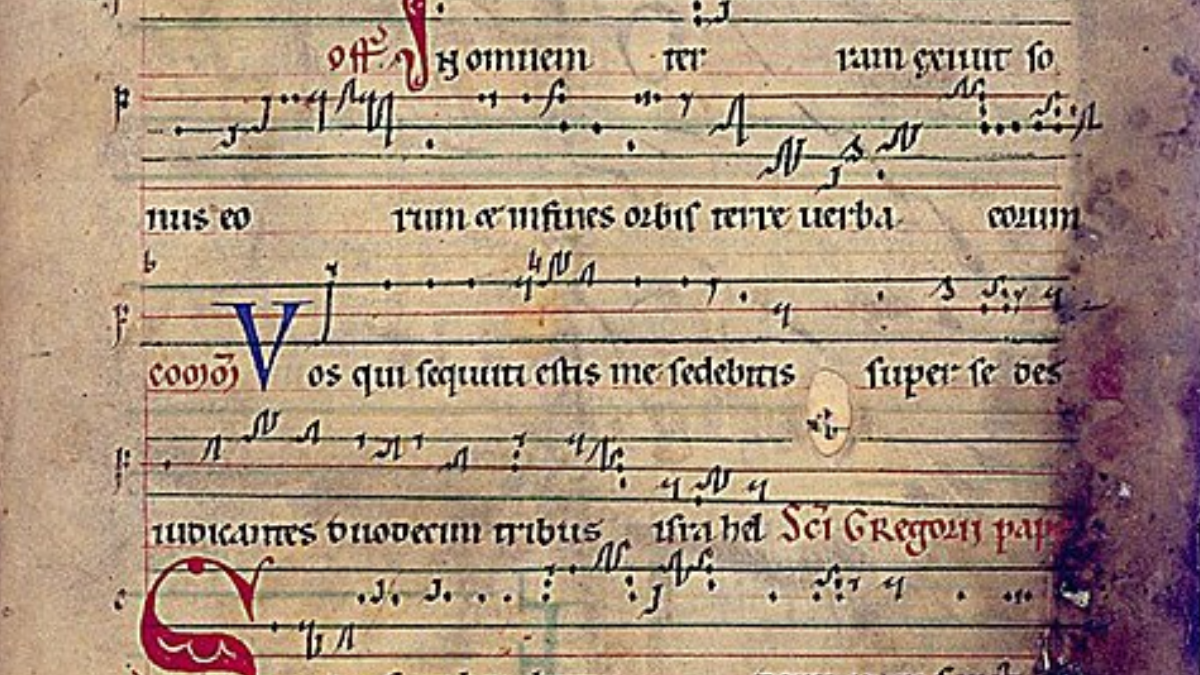 Off IN omnem ter ram exiuit so
nus eo rum & infines orbis terre uerba eorum
com̄o Vos qui sequuti estis me sedebitis super se des
iudicantes duodecim tribus israhel Sc̄i GRegorii pap
S